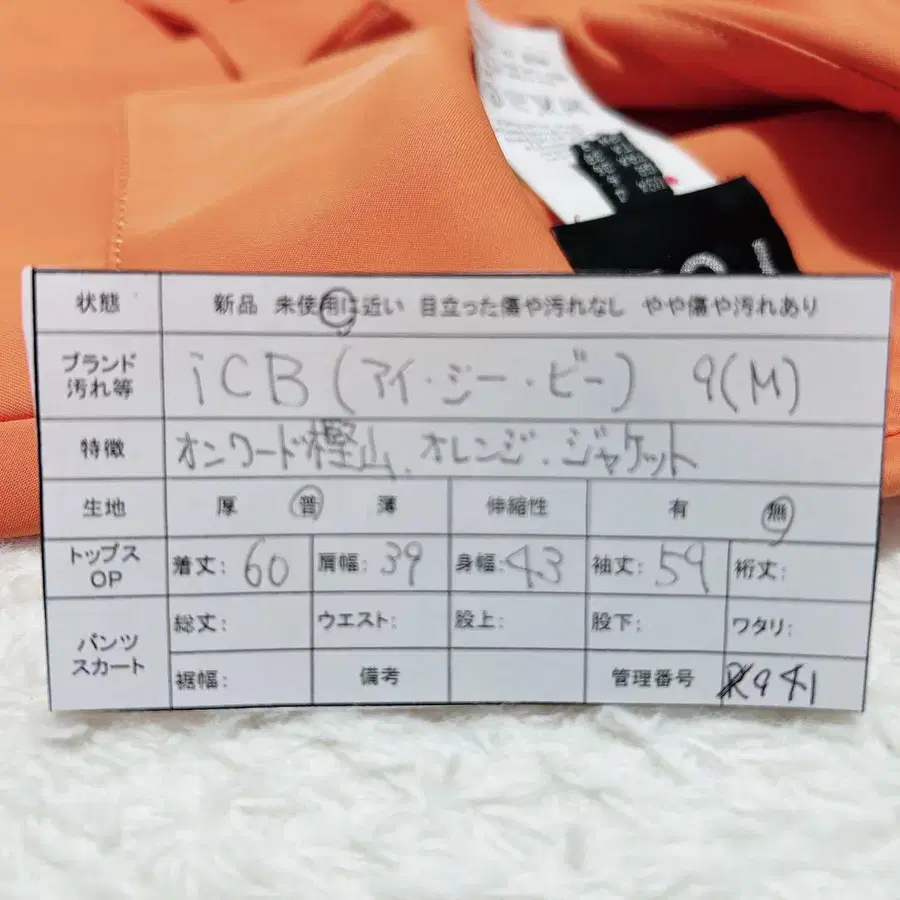 状態 新品 未使用に近い 目立った傷や汚れなし やや傷や汚れあり
ブランド
汚れ等 iCB (アイ・シー・ビー) 9(M)
特徴 オンワード樫山、オレンジ、ジャケット
生地 厚 普 薄 伸縮性 有 無
トップス
OP 着丈: 60 肩幅: 39 身幅: 43 袖丈: 59 裄丈:
パンツ
スカート 総丈: ウエスト: 股上: 股下: ワタリ:
裾幅: 備考 管理番号 941